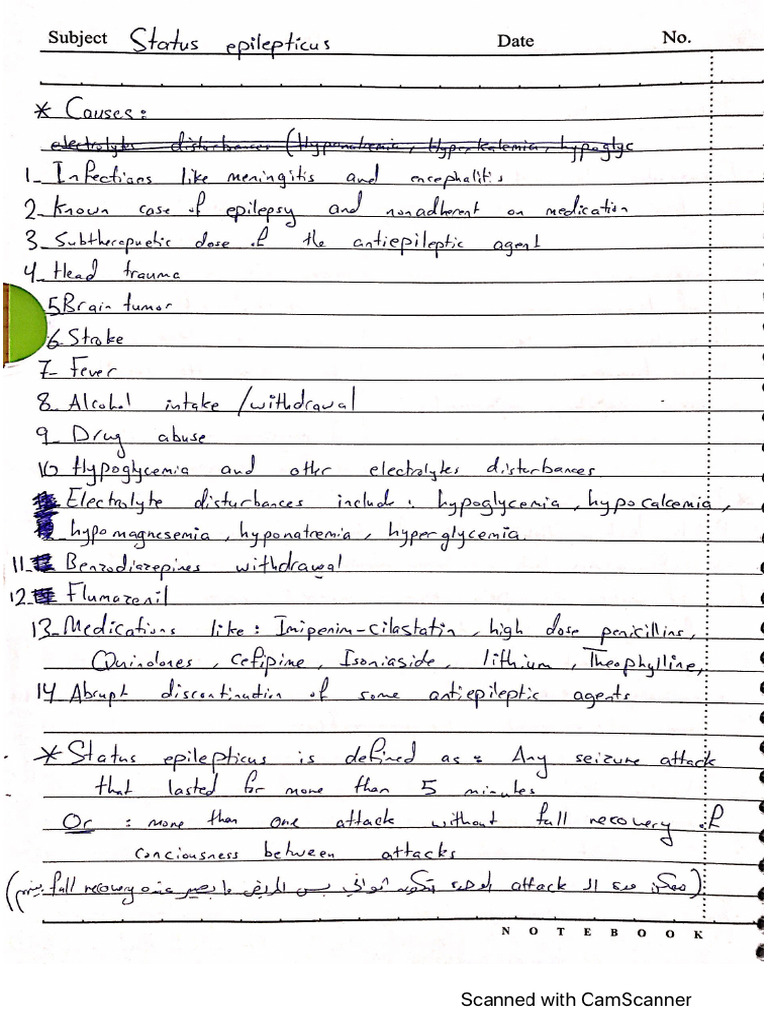 Subject Status epilepticus Date No.
* Causes:
electrolytes disturbances (Hyponatremia, Hyperkalemia, hypoglyc
1_ Infections like meningitis and encephalitis
2_ Known case of epilepsy and nonadherent on medication
3_ Subtherapuetic dose of the antiepileptic agent
4_ Head trauma
5 Brain tumor
6_ Stroke
7_ Fever
8_ Alcohol intake / withdrawal
9_ Drug abuse
10_ Hypoglycemia and other electrolytes disturbances
Electrolyte disturbances include: hypoglycemia, hypocalcemia,
hypomagnesemia, hyponatremia, hyperglycemia.
11_ Benzodiazepines withdrawal
12_ Flumazenil
13_ Medications like: Imipenim-cilastatin, high dose penicillins,
Quinolones, cefipine, Isoniaside, lithium, Theophylline,
14_ Abrupt discontinuation of some antiepileptic agents
* Status epilepticus is defined as: Any seizure attack
that lasted for more than 5 minutes
Or : more than one attack without full recovery of
conciousness between attacks
(ممكن مدة الـ attack الوحدة تكون ثواني بس المريض ما بصير عنده full recovery بينهم)
N O T E B O O K
Scanned with CamScanner